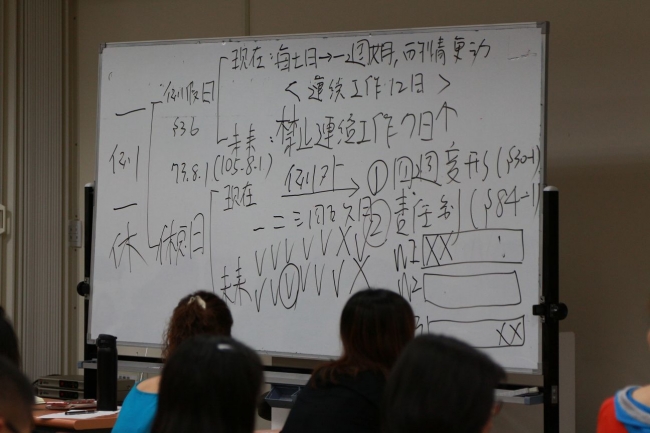 一例一休
例假日
§36
73.8.1 (105.8.1)
現在：每七日→一週期，而酌情更動
＜連續工作12日＞
未來：禁止連續工作7日↑
例外→ ①四週變形(§30-1)
②責任制(§84-1)
休息日
現在
一二三四五六日
VVVVVXV
未來
VVVVVVX
W1 XX
W2
XX